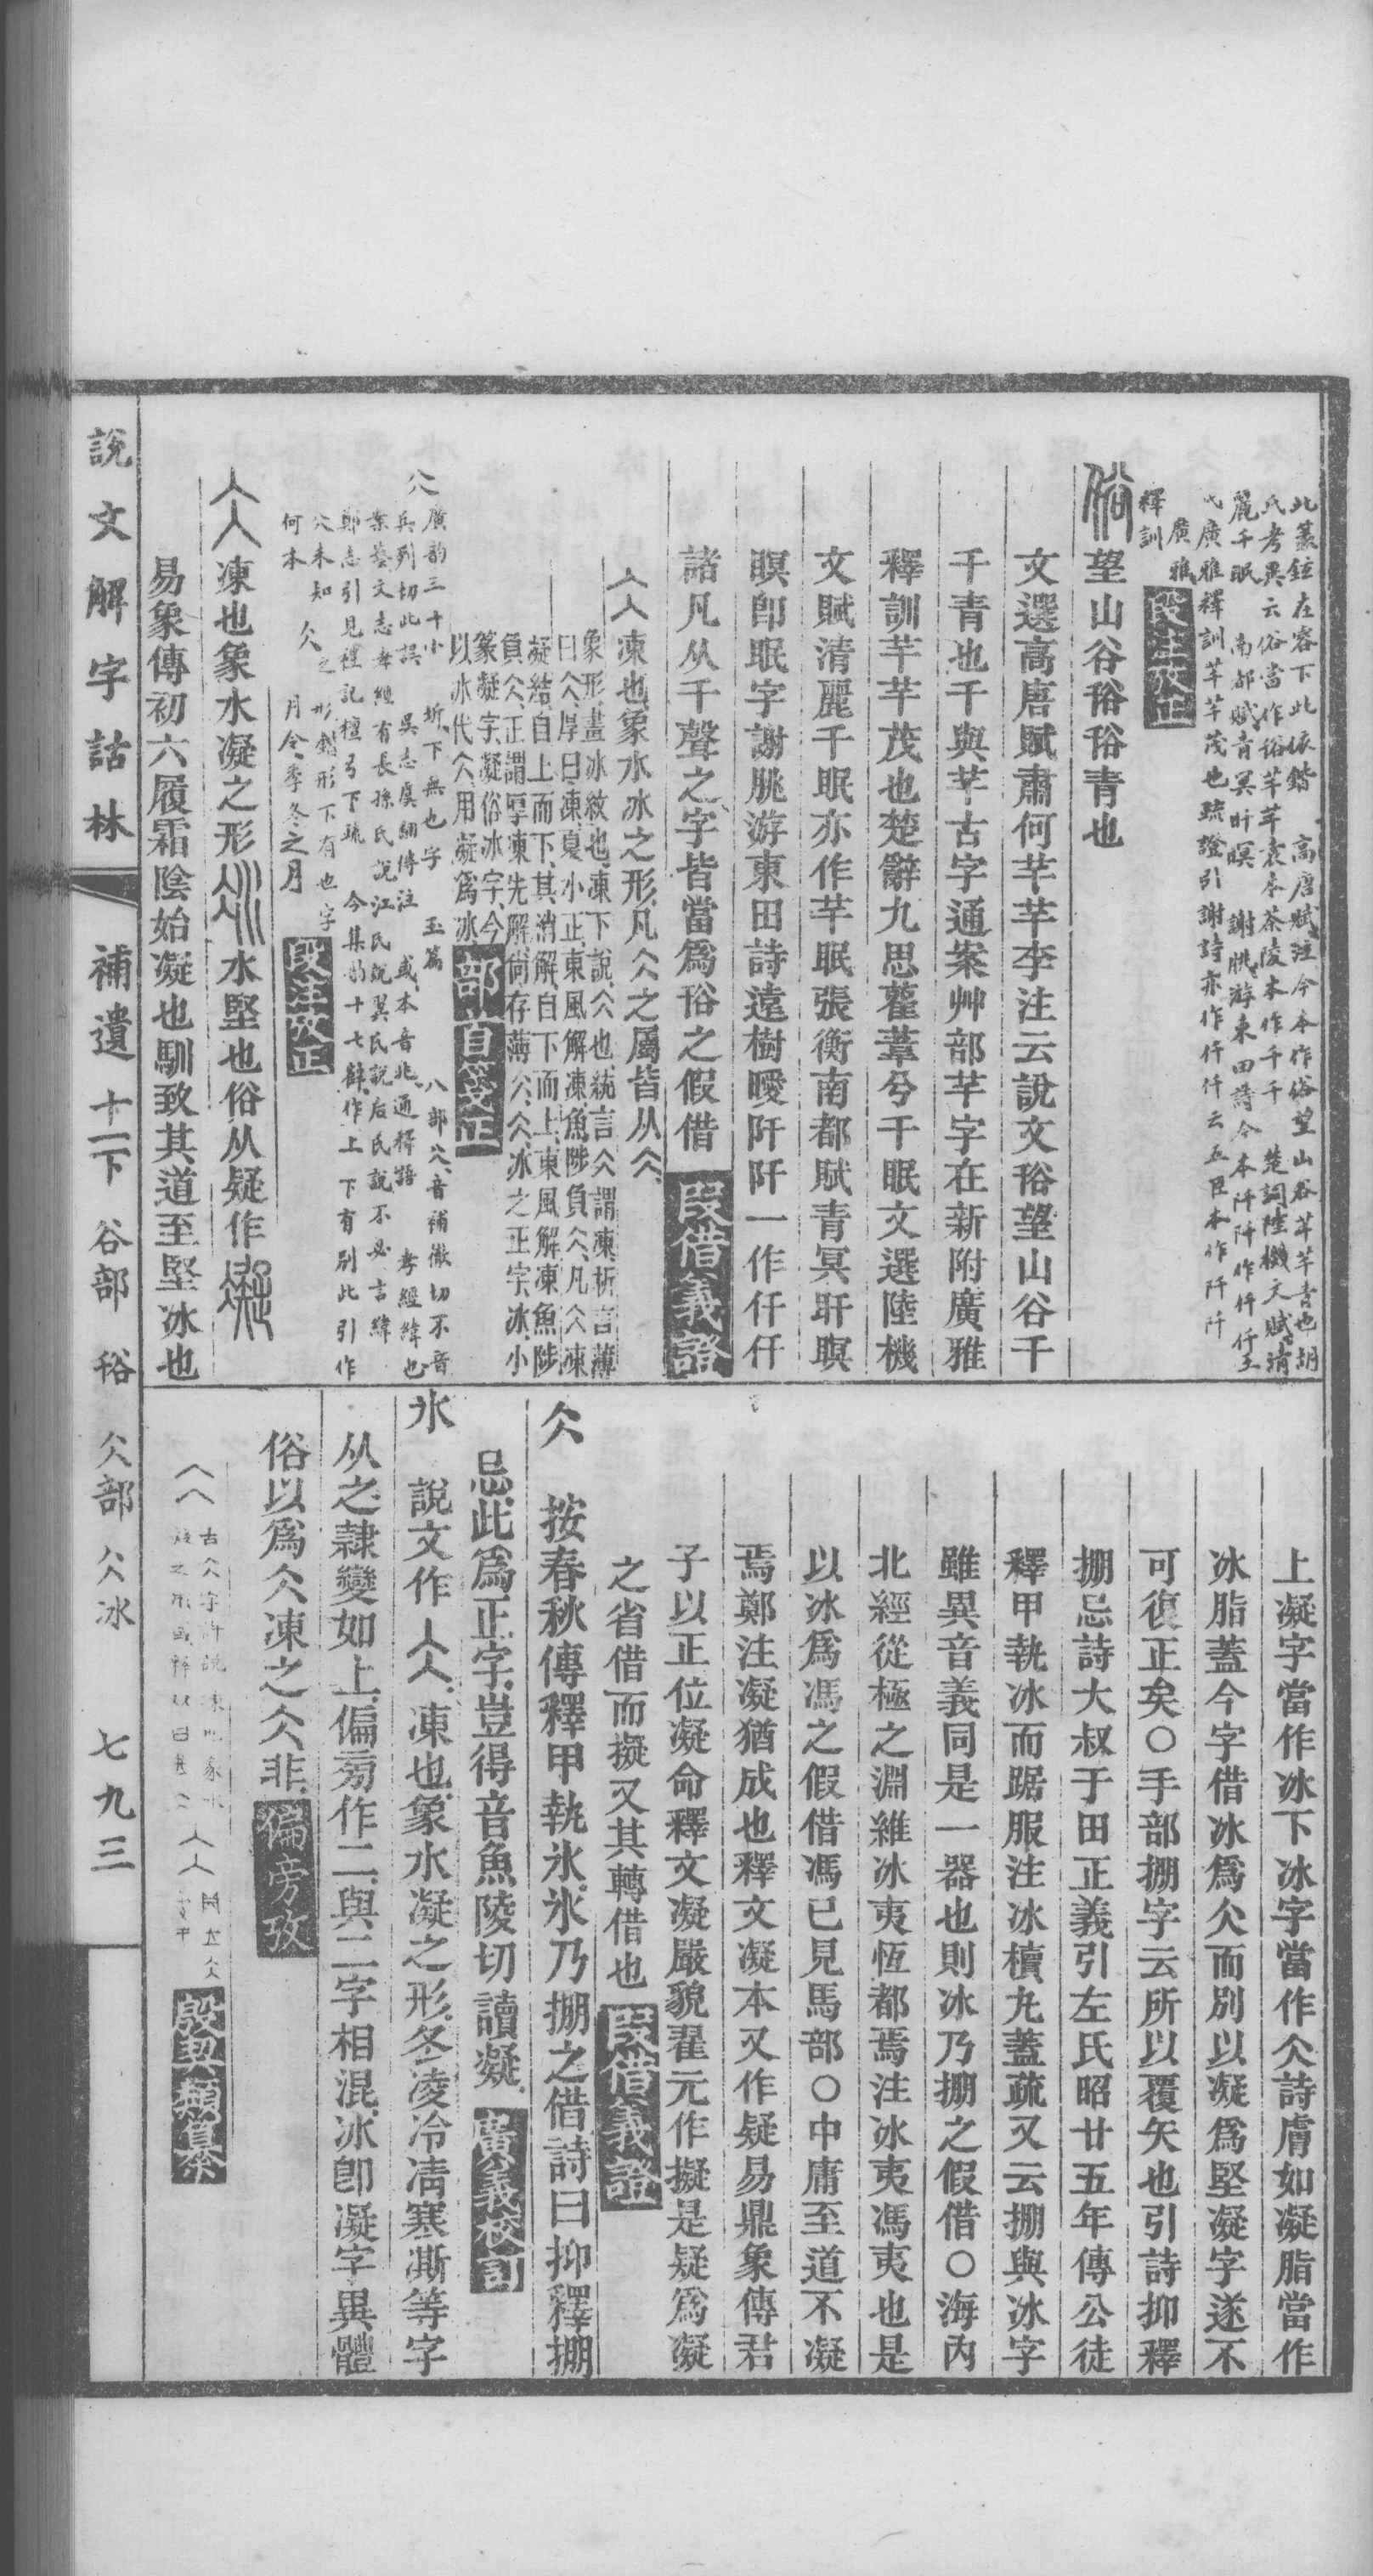 此篆鉉在容下此依鍇　高唐賦注今本作俗望山谷芊芊青也胡
氏考異云俗當作谸芊芊袁本茶陵本作千千　楚詞陸機文賦清
麗千眠　南都賦青冥盰瞑　謝朓游東田詩今本阡阡作仟仟王
氏廣雅釋訓芊芊茂也疏證引謝詩亦作仟仟云五臣本作阡阡
廣雅
釋訓
段注攷正
望山谷谸谸青也
文選高唐賦肅何芊芊李注云說文谸望山谷千
千青也千與芊古字通案艸部芊字在新附廣雅
釋訓芊芊茂也楚辭九思雚葦兮千眠文選陸機
文賦清麗千眠亦作芊眠張衡南都賦青冥盰瞑
瞑卽眠字謝朓游東田詩遠樹曖阡阡一作仟仟
諸凡从千聲之字皆當爲谸之假借　叚借義證
仌凍也象水冰之形凡仌之屬皆从仌
象形畫冰紋也凍下說仌也統言仌謂凍析言薄
曰仌厚曰凍夏小正東風解凍魚陟負仌凡仌凍
凝結自上而下其消解自下而上東風解凍魚陟
負仌正謂厚凍先解尙存薄仌仌冰之正字冰小
篆凝字凝俗冰字今
以冰代仌用凝爲冰
部首箋正
仌廣韵三十小　圻下無也字　玉篇　八部仌音補徹切不音
兵列切此誤　吳志虞翻傳注　或本音北通釋語　孝經緯也
案藝文志孝經有長孫氏說江氏說翼氏說后氏說不必言緯
鄭志引見禮記檀弓下疏　今集韵十七薛作上下有別此引作
仌未知　仌之形鍇形下有也字
何本　月令季冬之月
段注攷正
仌凍也象水凝之形冰水堅也俗从疑作凝
易象傳初六履霜陰始凝也馴致其道至堅冰也
上凝字當作冰下冰字當作仌詩膚如凝脂當作
冰脂蓋今字借冰爲仌而別以凝爲堅凝字遂不
可復正矣〇手部掤字云所以覆矢也引詩抑釋
掤忌詩大叔于田正義引左氏昭廿五年傳公徒
釋甲執冰而踞服注冰櫝丸蓋疏又云掤與冰字
雖異音義同是一器也則冰乃掤之假借〇海內
北經從極之淵維冰夷恆都焉注冰夷馮夷也是
以冰爲馮之假借馮已見馬部〇中庸至道不凝
焉鄭注凝猶成也釋文凝本又作疑易鼎象傳君
子以正位凝命釋文凝嚴貌翟元作擬是疑爲凝
之省借而擬又其轉借也　叚借義證
仌　按春秋傳釋甲執氷氷乃掤之借詩曰抑釋掤
忌此爲正字豈得音魚陵切讀凝　廣義校訂
氷　說文作仌凍也象水凝之形冬凌冷凊寒凘等字
从之隸變如上偏旁作冫與二字相混冰卽凝字異體
俗以爲仌凍之仌非　偏旁攷
古仌字許說凍也象水
凝之形
殷契類纂
說文解字詁林　補遺　十一下　谷部　谸　仌部　仌冰　七九三